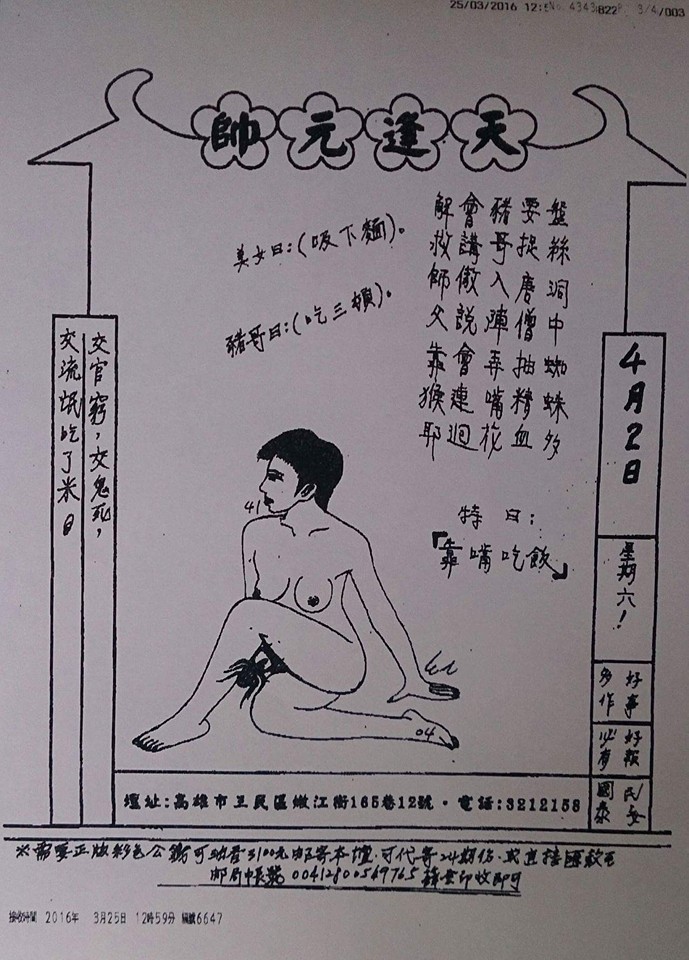 25/03/2016 12:5 No. 4343 822 P. 3/4 /003
天逢元帥
盤絲洞中蜘蛛多
要捉唐僧抽精血
豬哥入陣弄嘴花
會講傲說會連迴
解救師父靠猴耶
美女曰:(吸下麵)。
豬哥曰:(吃三頓)。
特曰:
『靠嘴吃飯』
4月2日
星期六!
好事多作
好報必有
民安國泰
交官窮,交鬼死,
交流氓吃了米日
41
04
壇址:高雄市三民區嫩江街165巷12號・電話:3212158
※需要正版彩色公籤可助香3100元郵寄本壇.可代寄24期份.或直接匯款至
郵局帳號 00412800549765
接收時間 2016年 3月25日 12時59分 編號6647